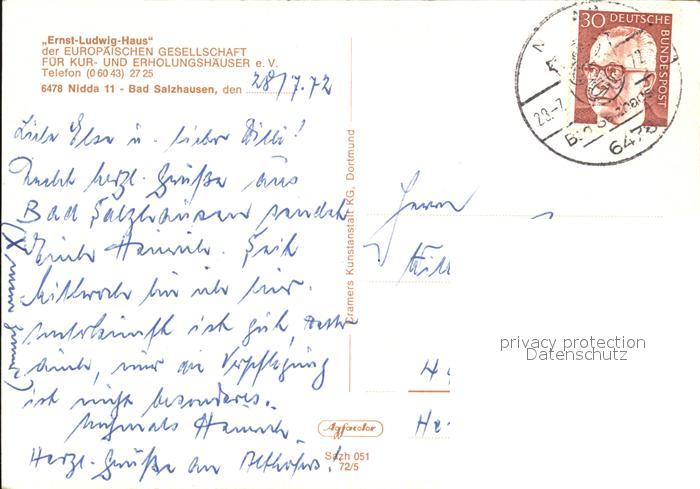 „Ernst-Ludwig-Haus"
der EUROPÄISCHEN GESELLSCHAFT
FÜR KUR- UND ERHOLUNGSHÄUSER e. V.
Telefon (0 60 43) 27 25
6478 Nidda 11 - Bad Salzhausen, den 28/7.72
Liebe Else u. lieber Willi!
Recht herzl. Grüße aus
Bad Salzhausen sendet
Heinrich. Seit
Mittwoch bin ich hier.
Unterkunft ist gut,
auch, nur die Verpflegung
ist nicht besonderes.
Nochmals Heinrich
Herzl. Grüße an Althofers!
Kramers Kunstanstalt KG, Dortmund
Agfacolor
Sazh 051
72/5
30 DEUTSCHE
BUNDESPOST
6478
Herrn
privacy protection
Datenschutz